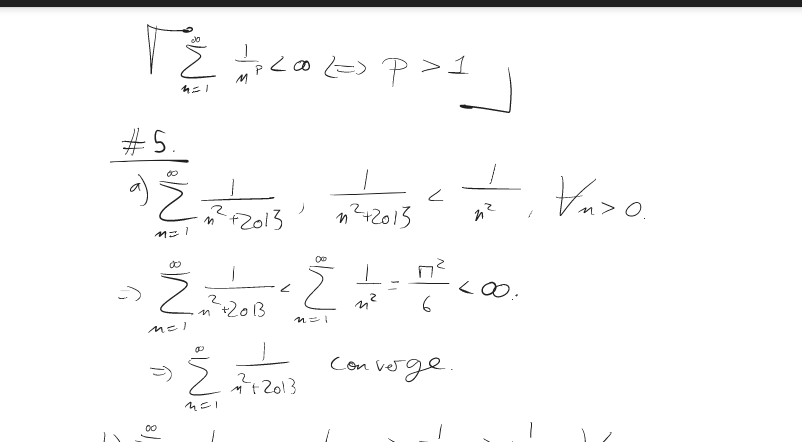 ⌈ ∑_{n=1}^{∞} 1/n^p < ∞ ⟺ p > 1 ⌋
#5.
a) ∑_{n=1}^{∞} 1/(n²+2013), 1/(n²+2013) < 1/n², ∀n > 0.
⇒ ∑_{n=1}^{∞} 1/(n²+2013) < ∑_{n=1}^{∞} 1/n² = π²/6 < ∞.
⇒ ∑_{n=1}^{∞} 1/(n²+2013) converge.